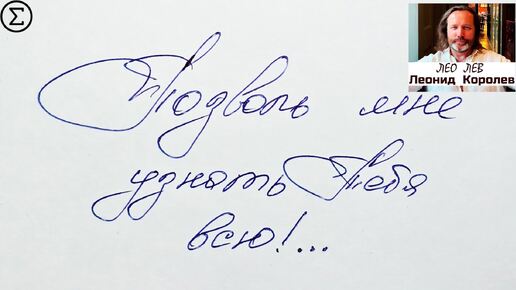 Σ
ЛЕО ЛЕВ
Леонид Королев
Позволь мне
узнать Тебя
всю!...